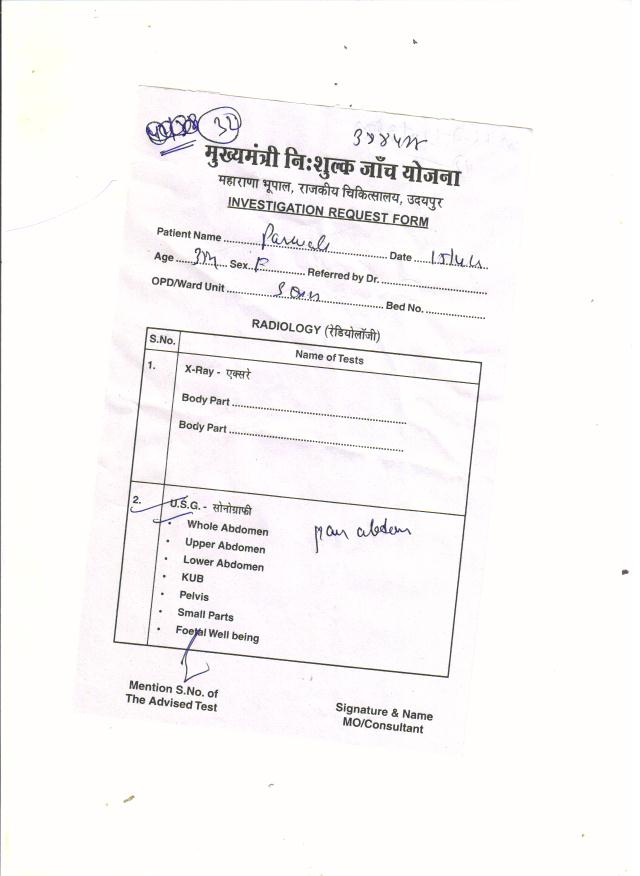 32
मुख्यमंत्री नि:शुल्क जाँच योजना
महाराणा भूपाल, राजकीय चिकित्सालय, उदयपुर
INVESTIGATION REQUEST FORM
Patient Name Date
Age Sex F Referred by Dr.
OPD/Ward Unit Bed No.
RADIOLOGY (रेडियोलॉजी)
S.No. Name of Tests
1. X-Ray - एक्सरे
Body Part
Body Part
2. U.S.G. - सोनोग्राफी
• Whole Abdomen
• Upper Abdomen
• Lower Abdomen
• KUB
• Pelvis
• Small Parts
• Foetal Well being
Mention S.No. of
The Advised Test
Signature & Name
MO/Consultant